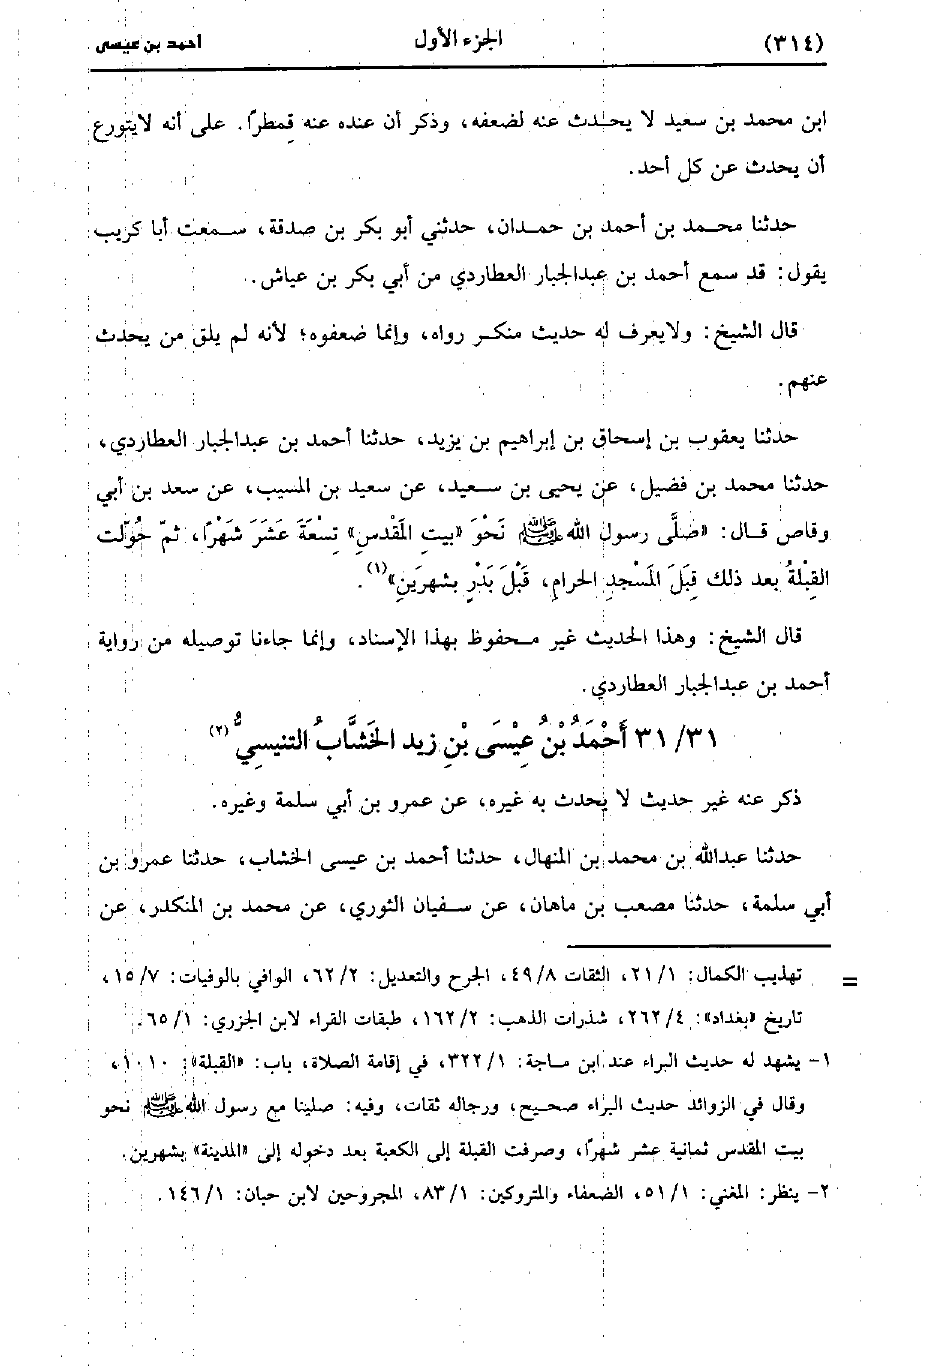 (٣١٤) الجزء الأول أحمد بن عيسى
ابن محمد بن سعيد لا يحدث عنه لضعفه، وذكر أن عنده عنه قمطرًا. على أنه لايتورع
أن يحدث عن كل أحد.
حدثنا محمد بن أحمد بن حمدان، حدثني أبو بكر بن صدقة، سمعت أبا كريب
يقول: قد سمع أحمد بن عبدالجبار العطاردي من أبي بكر بن عياش.
قال الشيخ: ولايعرف له حديث منكر رواه، وإنما ضعفوه؛ لأنه لم يلق من يحدث
عنهم.
حدثنا يعقوب بن إسحاق بن إبراهيم بن يزيد، حدثنا أحمد بن عبدالجبار العطاردي،
حدثنا محمد بن فضيل، عن يحيى بن سعيد، عن سعيد بن المسيب، عن سعد بن أبي
وقاص قال: «صَلَّى رسول الله ﷺ نَحْوَ «بيتِ المَقْدسِ» تِسْعَةَ عَشَرَ شَهْرًا، ثمّ حُوِّلت
القِبْلةُ بعد ذلك قِبَلَ المَسْجدِ الحرامِ، قَبْلَ بَدْرٍ بشهرَينِ»(١).
قال الشيخ: وهذا الحديث غير محفوظ بهذا الإسناد، وإنما جاءنا توصيله من رواية
أحمد بن عبدالجبار العطاردي.
٣١/ ٣١ أَحْمَدُ بْنُ عِيْسَى بْنِ زيد الخَشَّابُ التنيسيُّ(٢)
ذكر عنه غير حديث لا يُحدث به غيره، عن عمرو بن أبي سلمة وغيره.
حدثنا عبدالله بن محمد بن المنهال، حدثنا أحمد بن عيسى الخشاب، حدثنا عمرو بن
أبي سلمة، حدثنا مصعب بن ماهان، عن سفيان الثوري، عن محمد بن المنكدر، عن
= تهذيب الكمال: ٢١/١، الثقات ٤٩/٨، الجرح والتعديل: ٦٢/٢، الوافي بالوفيات: ١٥/٧،
تاريخ «بغداد»: ٢٦٢/٤، شذرات الذهب: ١٦٢/٢، طبقات القراء لابن الجزري: ٦٥/١.
١- يشهد له حديث البراء عند ابن ماجة: ٣٢٢/١، في إقامة الصلاة، باب: «القبلة»: ١٠١٠،
وقال في الزوائد حديث البراء صحيح، ورجاله ثقات، وفيه: صلينا مع رسول الله ﷺ نحو
بيت المقدس ثمانية عشر شهرًا، وصرفت القبلة إلى الكعبة بعد دخوله إلى «المدينة» بشهرين.
٢- ينظر: المغني: ٥١/١، الضعفاء والمتروكين: ٨٣/١، المجروحين لابن حبان: ١٤٦/١.